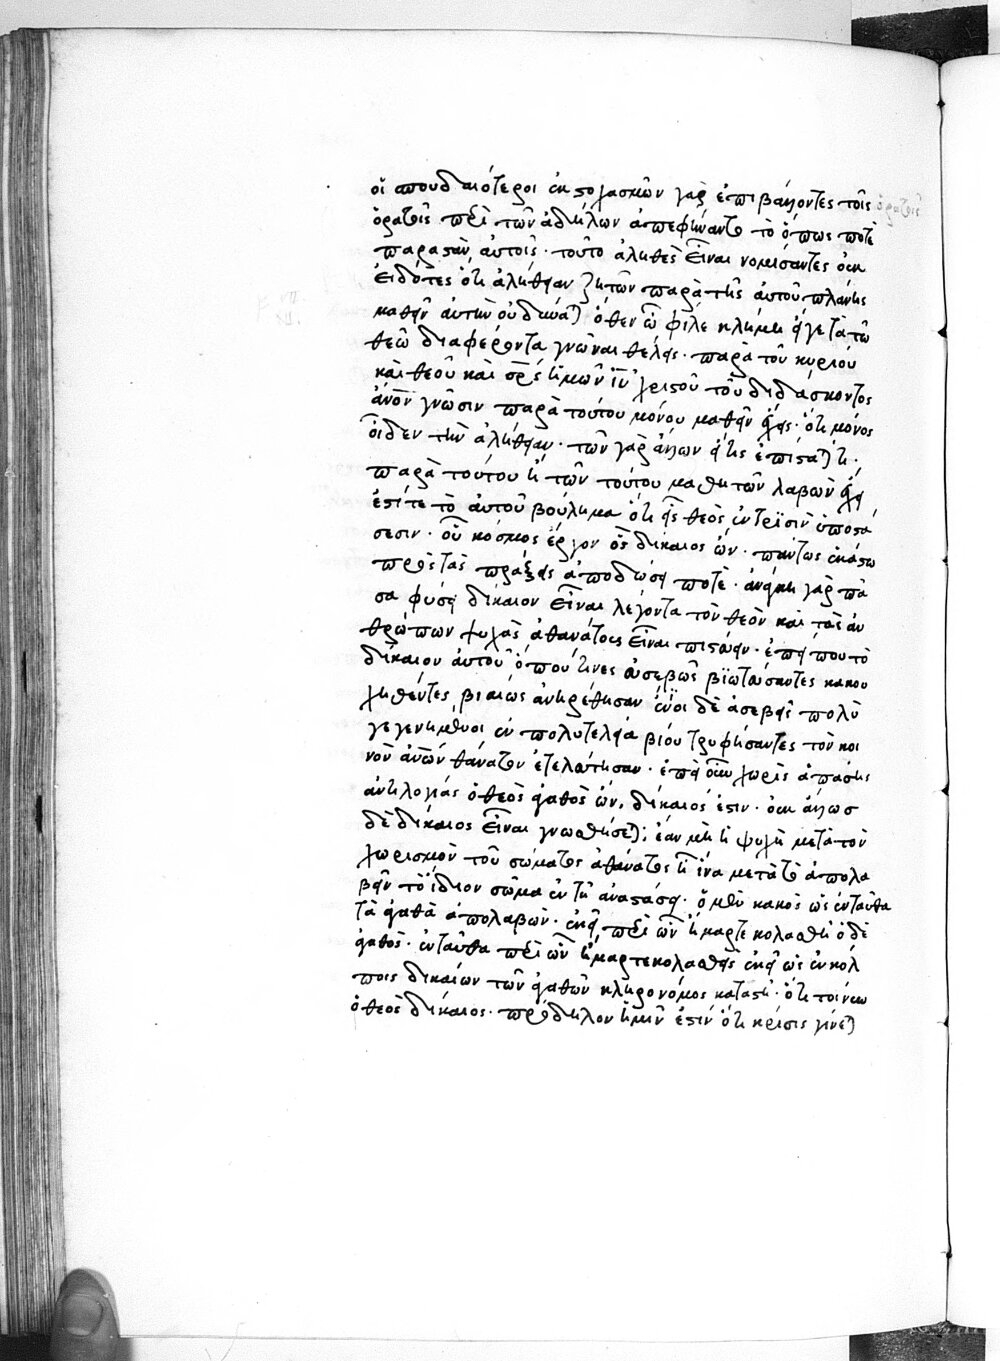 οἱ σπουδαιότεροι ἐκ στοχασμῶν γὰρ ἐπιβάλοντες τοῖς
ὁρατοῖς περὶ τῶν ἀδήλων ἀπεφήναντο τὸ ὅπως ποτὲ
παραστὰν αὐτοῖς· τοῦτο ἀληθὲς εἶναι νομίσαντες οὐκ
εἰδότες ὅτι ἀλήθειαν ζητῶν παρὰ τῆς αὐτοῦ πλάνης
λαθεῖν αὐτὴν οὐ δύναται) ὅθεν ὦ φίλε κλήμη εἴγε τὰ τῶ
θεῶ διαφέροντα γνῶναι θέλεις· παρὰ τοῦ κυρίου
καὶ θεοῦ καὶ σρς ἡμῶν ἰῦ χριστοῦ τοῦ διδάσκοντος
ἀνον γνῶσιν παρὰ τούτου μόνου μαθεῖν ἔχεις· ὅτι μόνος
οἶδεν τὴν ἀλήθειαν· τῶν γὰρ ἄλλων εἴ τις ἐπίσταταί τι·
παρὰ τούτου ἢ τῶν τούτου μαθητῶν λαβὼν ἔχει
ἐστί τε τὸ αὐτοῦ βούλημα ὅτι εἷς θεὸς ἐν τρισὶν ὑποστά
σεσιν· οὗ κόσμος ἔργον ὃς δίκαιος ὢν· πάντως ἑκάστω
πρὸς τὰς πράξεις ἀποδώσει ποτὲ· ἀνάγκη γὰρ πᾶ
σα φύσει δίκαιον εἶναι λέγοντα τὸν θεὸν καὶ τὰς ἀν
θρώπων ψυχὰς ἀθανάτους εἶναι πιστεύειν· ἐπεὶ ποῦ τὸ
δίκαιον αὐτοῦ ὅπου τινες εὐσεβῶς βιώσαντες κακου
χηθέντες βιαίως ἀνηρέθησαν ἔνιοι δὲ ἀσεβεῖς πολὺ
γεγενημένοι ἐν πολυτελεία βίου τρυφήσαντες τὸν κοι
νὸν ἀνῶν θάνατον ἐτελεύτησαν· ἐπεὶ οὖν χωρὶς ἁπάσης
ἀντιλογίας ὁ θεὸς ἀγαθὸς ὢν, δίκαιός ἐστιν· οὐκ ἄλλως
δὲ δίκαιος εἶναι γνωσθήσεται; ἐὰν μὴ ἡ ψυχὴ μετὰ τὸν
χωρισμὸν τοῦ σώματος ἀθάνατος ἦ ἵνα μετὰ τὸ ἀπολα
βεῖν τὸ ἴδιον σῶμα ἐν τῆ ἀναστάσει· ὁ μὲν κακὸς ὡς ἐνταῦθα
τὰ ἀγαθὰ ἀπολαβὼν· ἐκεῖ περὶ ὧν ἥμαρτε κολασθῆ ὁ δὲ
ἀγαθὸς· ἐνταῦθα περὶ ὧν ἥμαρτε κολασθεὶς ἐκεῖ ὡς ἐν κόλ
ποις δικαίων τῶν ἀγαθῶν κληρονόμος καταστῆ· ὅτι τοίνυν
ὁ θεὸς δίκαιος· πρόδηλον ἡμῖν ἐστὶν ὅτι κρίσις γίνεται